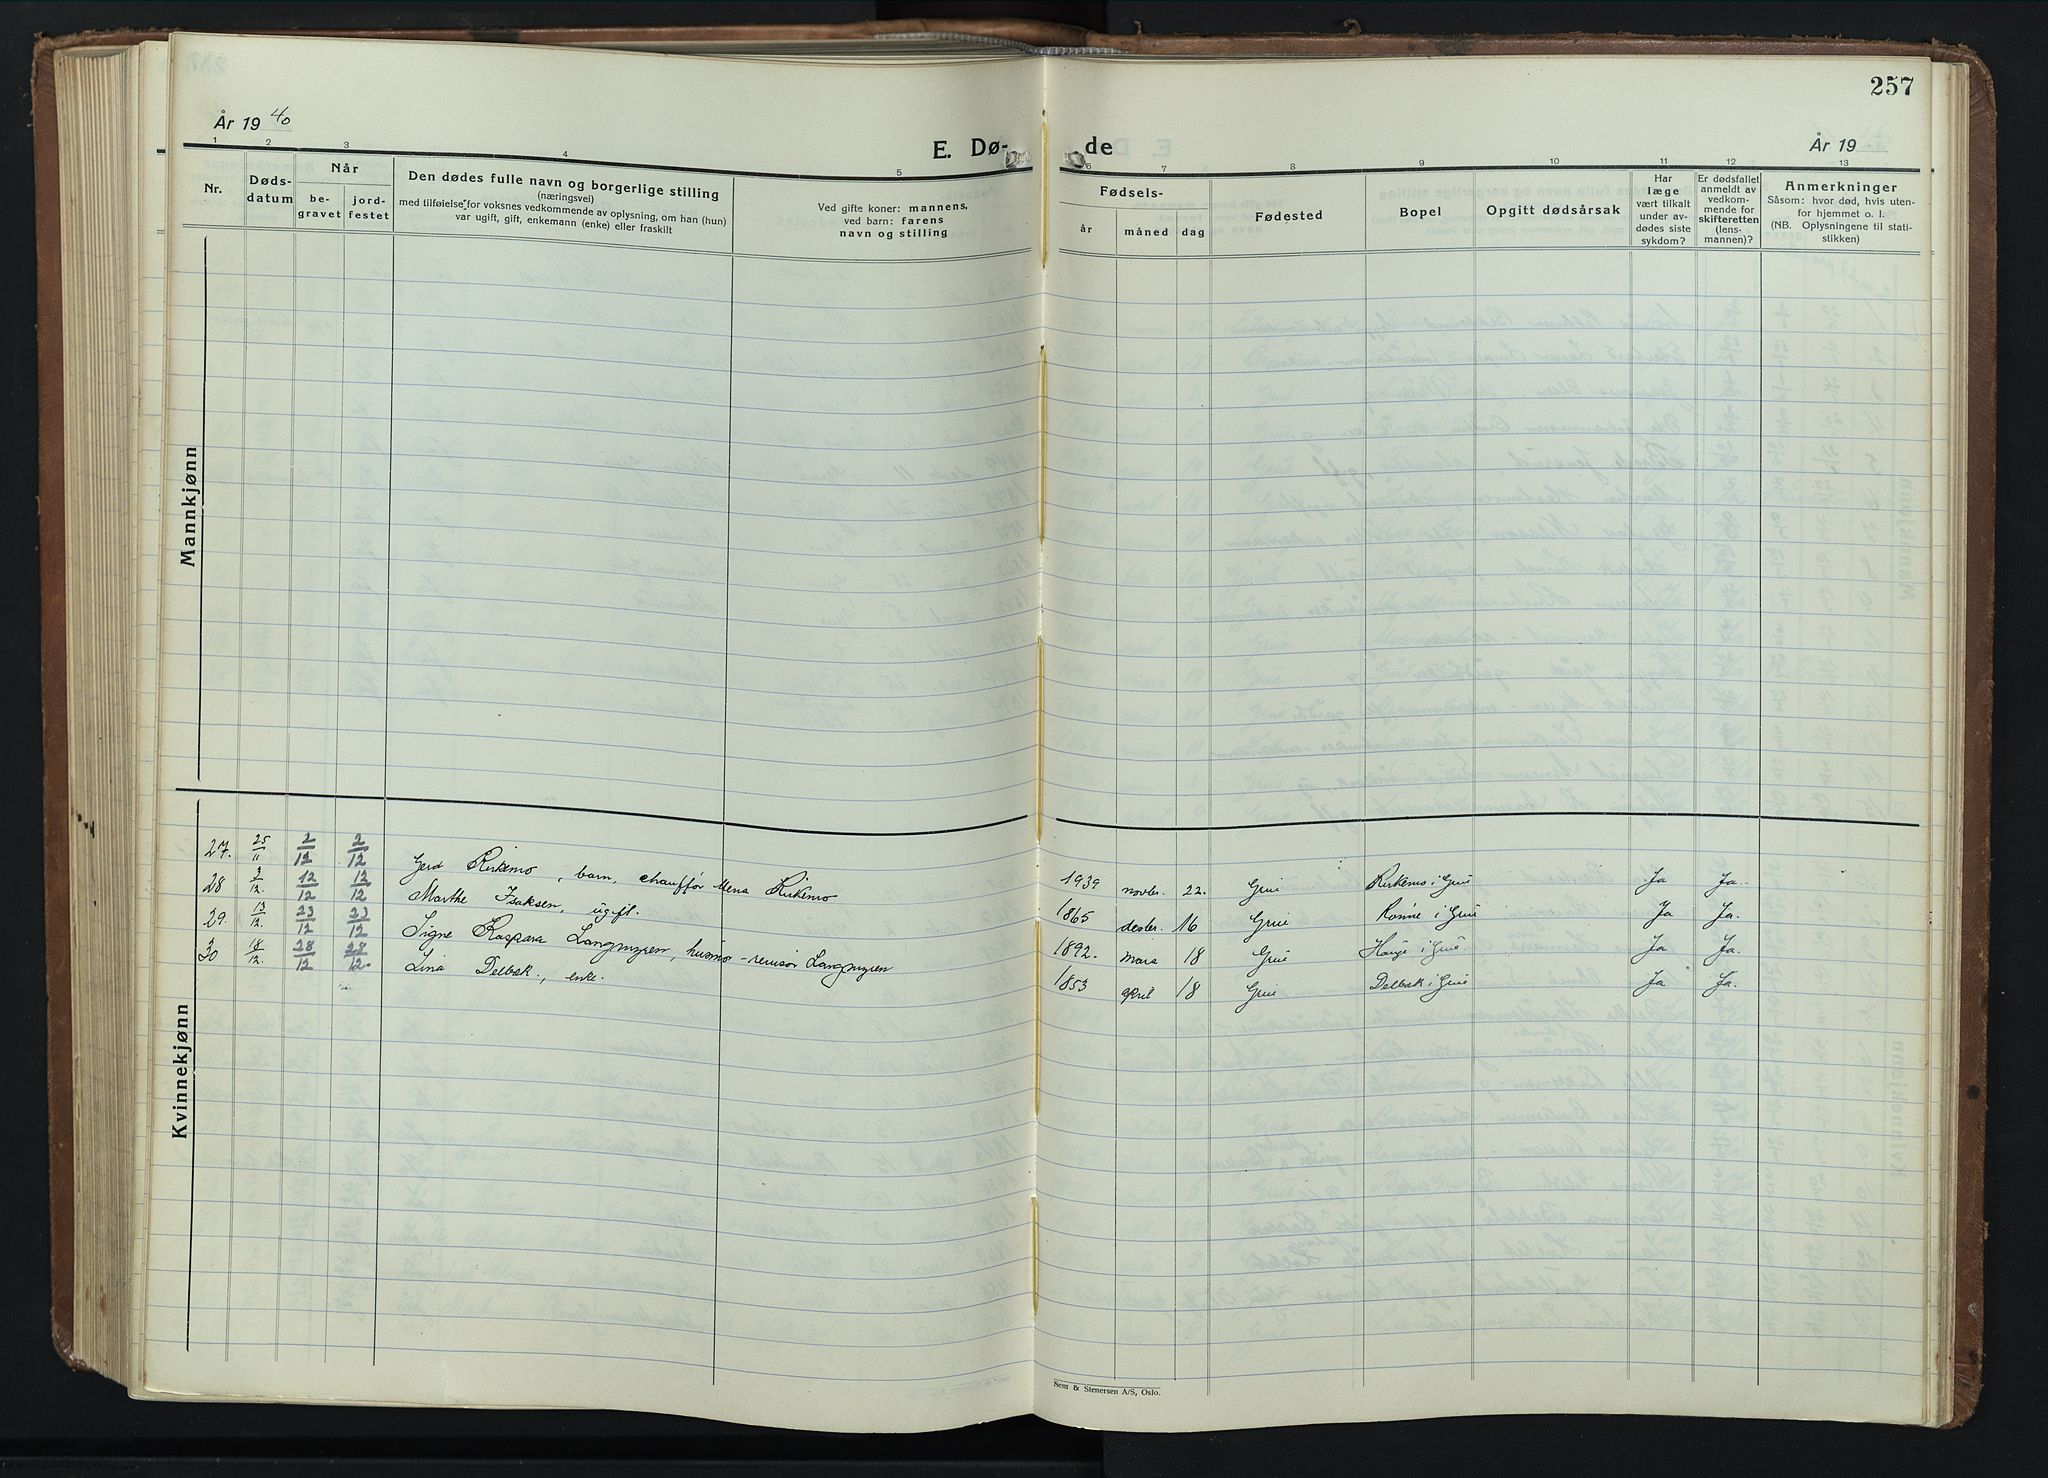 257
År 19 40
E. Dø-
de
År 19
1 2 3 4 5 6 7 8 9 10 11 12 13
Nr.
Døds-
datum
Når
be-
gravet
jord-
festet
Den dødes fulle navn og borgerlige stilling
(næringsvei)
med tilføielse for voksnes vedkommende av oplysning, om han (hun)
var ugift, gift, enkemann (enke) eller fraskilt
Ved gifte koner: mannens,
ved barn: farens
navn og stilling
Fødsels-
år
måned
dag
Fødested
Bopel
Opgitt dødsårsak
Har
læge
vært tilkalt
under av-
dødes siste
sykdom?
Er dødsfallet
anmeldt av
vedkom-
mende for
skifteretten
(lens-
mannen)?
Anmerkninger
Såsom: hvor død, hvis uten-
for hjemmet o. l.
(NB. Oplysningene til stati-
stikken)
Mannkjønn
Kvinnekjønn
27. 25/11 2/12 2/12 Gerd Kirkemo, barn, chauffør Kirkemo 1939 novbr. 22. Grue Kirkemo i Grue Ja Ja.
28 3/12. 12/12 12/12 Marthe Isaksen, ugift. 1865 desbr. 16 Grue i Grue Ja Ja.
29. 13/12. 23/12 23/12 Signe Kaspara Langmyren, husmor - Langmyren 1892. mars 18 Grue i Grue Ja Ja.
30 18/12. 28/12 28/12. Lina Delbæk, enke. 1853 april 18 Grue Delbæk i Grue Ja Ja.
Sem & Stenersen A/S, Oslo.